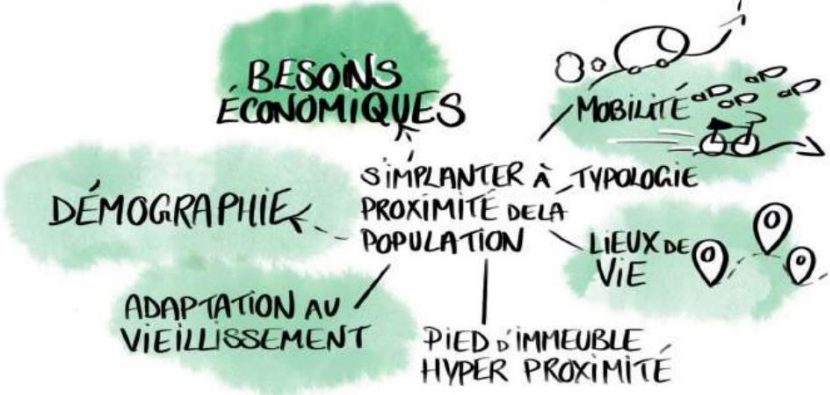 BESOINS
ÉCONOMIQUES
MOBILITÉ
DÉMOGRAPHIE
S'IMPLANTER À
PROXIMITÉ DE LA
POPULATION
TYPOLOGIE
LIEUX DE
VIE
ADAPTATION AU
VIEILLISSEMENT
PIED D'IMMEUBLE
HYPER PROXIMITÉ